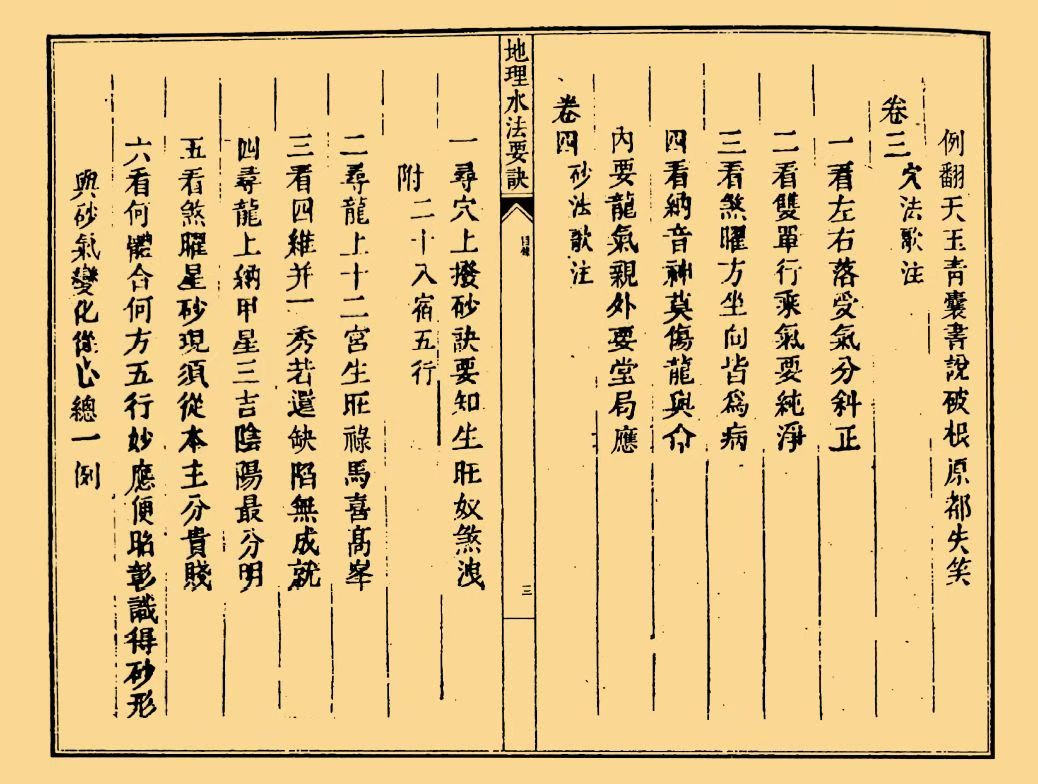 例翻天玉青囊書說破根原都失笑
卷三
穴法歌注
一看左右落受氣分斜正
二看雙單行乘氣要純淨
三看煞曜方坐向皆爲病
四看納音神莫傷龍與分
內要龍氣親外要堂局應
卷四
砂法歌注
地理水法要訣
三
一尋穴上撥砂訣要知生旺奴煞洩
附二十八宿五行
二尋龍上十二宮生旺祿馬喜高峯
三看四維并一秀若還缺陷無成就
四尋龍上納甲星三吉陰陽最分明
五看煞曜星砂現須從本主分貴賤
六看何體合何方五行妙應便昭彰識得砂形
與砂氣變化從心總一例